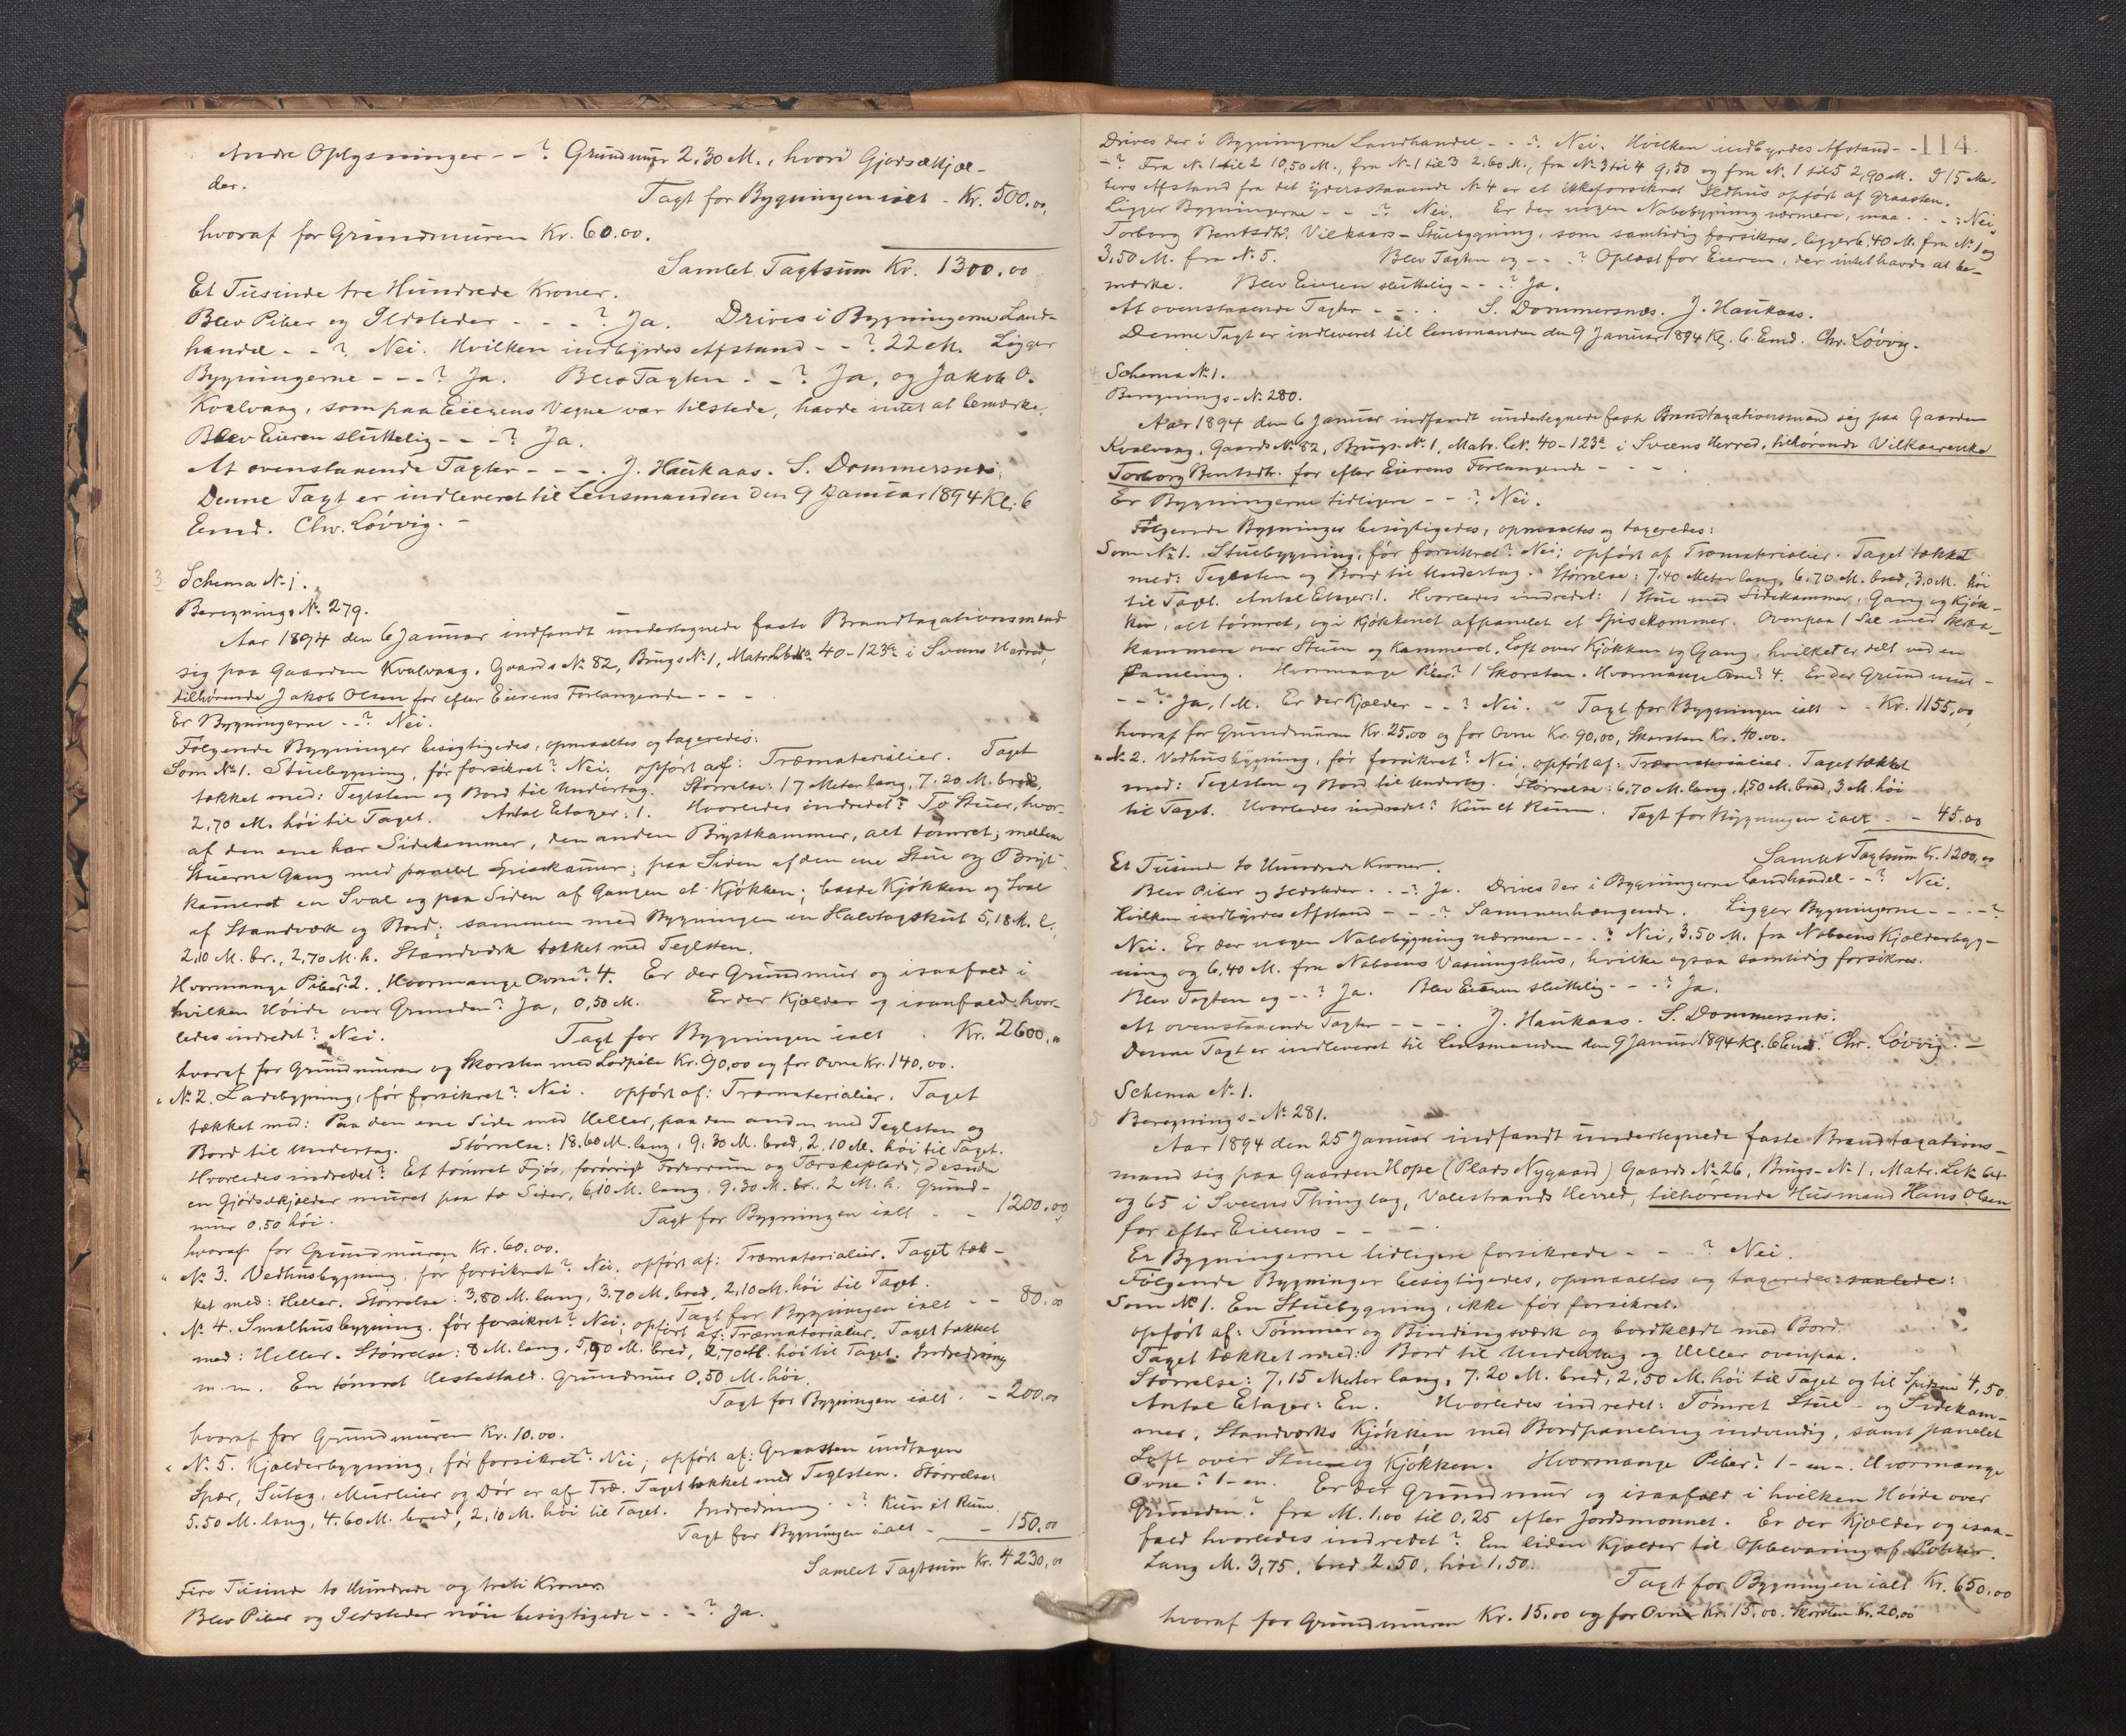 Andre Oplysninger - - ? Grundmur 2,30 M., hvori Gjødselkjæl-
der.
Taxt for Bygningen ialt - Kr. 500.00
hvoraf for Grundmuren Kr. 60.00.
Samlet Taxtsum Kr. 1300.00
Et Tusinde tre Hundrede Kroner.
Blev Piber og Ildsteder - - - ? Ja. Drives i Bygningerne Land-
handel - - ? Nei. Hvilken indbyrdes Afstand - - ? 22 M. Ligger
Bygningerne - - - ? Ja. Blev Taxten - - ? Ja, og Jakob O.
Kvalvaag, som paa Eierens Vegne var tilstede, havde intet at bemærke.
Blev Eieren sluttelig - - - ? Ja.
At ovenstaaende Taxter - - - . J. Haukaas. S. Dommersnes.
Denne Taxt er indleveret til Lensmanden den 9 Januar 1894 Kl. 6
Emd. Chr. Løvvig. -
3. Schema No 1.
Beregnings No 279.
Aar 1894 den 6 Januar indfandt undertegnede faste Brandtaxationsmænd
sig paa Gaarden Kvalvaag, Gaards No 82, Brugs No 1, Matr. Lb No 40-123a i Sveens Herred,
tilhørende Jakob Olsen for efter Eierens Forlangende - - -
Er Bygningerne - - ? Nei.
Følgende Bygninger besigtigedes, opmaaltes og taxeredes:
Som No 1. Stuebygning, før forsikret? Nei. opført af: Træmaterialier. Taget
tækket med: Teglsten og Bord til Undertag. Størrelse: 17 Meter lang, 7.20 M. bred,
2,70 M. høi til Taget. Antal Etager: 1. Hvorledes indredet? To Stuer, hvor-
af den ene har Sidekammer, den anden Brystkammer, alt tømret; mellem
Stuerne Gang med panelet Spiskamer; paa Siden af den ene Stue og Bryst-
kameret en Sval og paa Siden af Gangen et Kjøkken; baade Kjøkken og Sval
af Standværk og Bord; sammen med Bygningen en Halvtagskut 5,18 M. l.,
2,10 M. br., 2,70 M. h. Standværk tækket med Teglsten.
Hvormange Piber? 2. Hvormange Ovne? 4. Er der Grundmur og isaafald i
hvilken Høide over Grunden? Ja, 0,50 M. Er der Kjælder og isaafald hvor-
ledes indredet? Nei. Taxt for Bygningen ialt . Kr. 2600.00
hvoraf for Grundmuren og Skorsten med Lodpibe Kr. 90,00 og for Ovne Kr. 140.00.
" No 2. Ladebygning, før forsikret? Nei. opført af: Træmaterialier. Taget
tækket med: Paa den ene Side med Heller, paa den anden med Teglsten og
Bord til Undertag. Størrelse: 18.60 M. lang, 9,30 M. bred, 2,10 M. høi til Taget.
Hvorledes indredet? Et tømret Fjøs, forøvrigt Foderrum og Tærskeplads, desuden
en Gjødselkjælder muret paa to Sider, 6,10 M. lang, 9.30 M. br. 2 M. h. Grund-
mur 0,50 høi. Taxt for Bygningen ialt - - 1200.00
hvoraf for Grundmuren Kr. 60,00.
" No 3. Vedhusbygning, før forsikret? Nei. opført af: Træmaterialier. Taget tæk-
ket med: Heller. Størrelse: 3,80 M. lang, 3.70 M. bred, 2,10 M. høi til Taget.
Taxt for Bygningen ialt - - 80.00
" No 4. Smalhusbygning, før forsikret? Nei; opført af: Træmaterialier. Taget tækket
med: Heller. Størrelse: 8 M. lang, 5,90 M. bred, 2,70 M. høi til Taget. Indredning
m. m. En tømret Hestestald. Grundmur 0,50 M. høi.
Taxt for Bygningen ialt . - 200.00
hvoraf for Grundmuren Kr. 10.00.
" No 5. Kjælderbygning, før forsikret? Nei; opført af: Graasten undtagen
Spær, Sutag, Murleier og Dør er af Træ. Taget tækket med Teglsten. Størrelse:
5.50 M. lang, 4.60 M. bred, 2,10 M. høi til Taget. Indredning - ? Kun et Rum.
Taxt for Bygningen ialt - - 150,00
Samlet Taxtsum Kr. 4230,00
Fire Tusinde to Hundrede og treti Kroner.
Blev Piber og Ildsteder nøie besigtigede - - - ? Ja.
114.
Drives der i Bygningerne Landhandel - - ? Nei. Hvilken indbyrdes Afstand - -
- ? Fra No 1 til 2 10,50 M., fra No 1 til 3 2,60 M., fra No 3 til 4 9,50 og fra No 1 til 5 2,90 M. I 15 Me-
ters Afstand fra det yderstaaende No 4 er et ikkeforsikret Ildhus opført af Graasten.
Ligger Bygningerne - - ? Nei. Er der nogen Nabobygning nærmere, maa - - -: Nei,
Torborg Bentsdtr. Vilkaars-Stuebygning, som samtidig forsikres, ligger 6.40 M. fra No 1 og
3,50 M. fra No 5. Blev Taxten og - - ? Oplæst for Eieren, der intet havde at be-
mærke. Blev Eieren sluttelig - - ? Ja.
At ovenstaaende Taxter - - - . S. Dommersnes. J. Haukaas.
Denne Taxt er indleveret til Lensmanden den 9 Januar 1894 Kl. 6. Emd. Chr. Løvvig.
4 Schema No 1.
Beregnings-No 280.
Aar 1894 den 6 Januar indfandt undertegnede faste Brandtaxationsmænd sig paa Gaarden
Kvalvaag, Gaards No 82, Brugs-No 1, Matr. LNo. 40-123a i Sveens Herred, tilhørende Vilkaarsenke
Torborg Bentsdtr. for efter Eierens Forlangende - - -
Er Bygningerne tidligere - - ? Nei.
Følgende Bygninger besigtigedes, opmaaltes og taxeredes:
Som No 1. Stuebygning, før forsikret? Nei; opført af Træmaterialier. Taget tækket
med: Teglsten og Bord til Undertag. Størrelse: 7.40 Meter lang, 6.70 M. bred, 3.0 M. høi
til Taget. Antal Etager: 1. Hvorledes indredet: 1 Stue med Sidekammer, Gang og Kjøk-
ken, alt tømret, og i Kjøkkenet afpanelet et Spisekammer. Ovenpaa 1 Sal med Skraa-
kammere over Stuen og Kammeret, Loft over Kjøkken og Gang, hvilket er delt ved en
Paneling. Hvormange Piber? 1 Skorsten. Hvormange Ovne? 4. Er der Grundmur -
- - ? Ja, 1 M. Er der Kjælder - - ? Nei. Taxt for Bygningen ialt - - Kr. 1155,00
hvoraf for Grundmuren Kr. 25.00 og for Ovne Kr. 90,00, Skorsten Kr. 40.00.
" No 2. Vedhusbygning, før forsikret? Nei. opført af: Træmaterialier. Taget tækket
med: Teglsten og Bord til Undertag. Størrelse: 6,70 M. lang, 1,50 M. bred, 3 M. høi
til Taget. Hvorledes indredet? Kun et Rum. Taxt for Bygningen ialt - - 45.00
Samlet Taxtsum Kr. 1200,00
Et Tusinde to Hundrede Kroner.
Blev Piber og Ildsteder - - - ? Ja. Drives der i Bygningerne Landhandel - - ? Nei.
Hvilken indbyrdes Afstand - - - ? Sammenhængende. Ligger Bygningerne - - - - ?
Nei. Er der nogen Nabobygning nærmere - - - ? Nei, 3.50 M. fra Naboens Kjælderbyg-
ning og 6,40 M. fra Naboens Vaaningshus, hvilke ogsaa samtidig forsikres.
Blev Taxten og - - ? Ja. Blev Eieren sluttelig - - - ? Ja.
At ovenstaaende Taxter - - - - . J. Haukaas. S. Dommersnes.
Denne Taxt er indleveret til Lensmanden den 9 Januar 1894 Kl. 6 Emd. Chr. Løvvig. -
Schema No 1.
Beregnings-No 281.
Aar 1894 den 25 Januar indfandt undertegnede faste Brandtaxations-
mænd sig paa Gaarden Hope (Plads Nygaard) Gaards No 26, Brugs-No 1, Matr. LNo 64
og 65 i Sveens Thinglag, Valestrands Herred, tilhørende Husmand Hans Olsen
for efter Eierens - - - - .
Er Bygningerne tidligere forsikrede - - - ? Nei.
Følgende Bygninger besigtigedes, opmaaltes og taxeredes: saalede:
Som No 1. En Stuebygning, ikke før forsikret.
opført af: Tømmer og Bindingsværk og bordklædt med Bord.
Taget tækket med: Bord til Undertag og Heller ovenpaa.
Størrelse: 7,15 Meter lang, 7.20 M. bred, 2,50 M. høi til Taget og til Spidsen 4,50.
Antal Etager: En. Hvorledes indredet: Tømret Stue - og Sidekam-
mer, Standværks Kjøkken med Bordpaneling indvendig, samt panelet
Loft over Stue og Kjøkken. Hvormange Piber? 1 - en -. Hvormange
Ovne? 1 - en. Er der Grundmur og isaafald i hvilken Høide over
Grunden? fra M. 1.00 til 0,25 efter Jordsmonnet. Er der Kjælder og isaa-
fald hvorledes indredet? En liden Kjælder til Opbevaring af Poteter.
Lang M. 3,75, bred 2.50, høi 1,50.
Taxt for Bygningen ialt Kr. 650.00
hvoraf for Grundmuren Kr. 15.00 og for Ovne Kr. 15.00. Skorsten Kr. 20,00